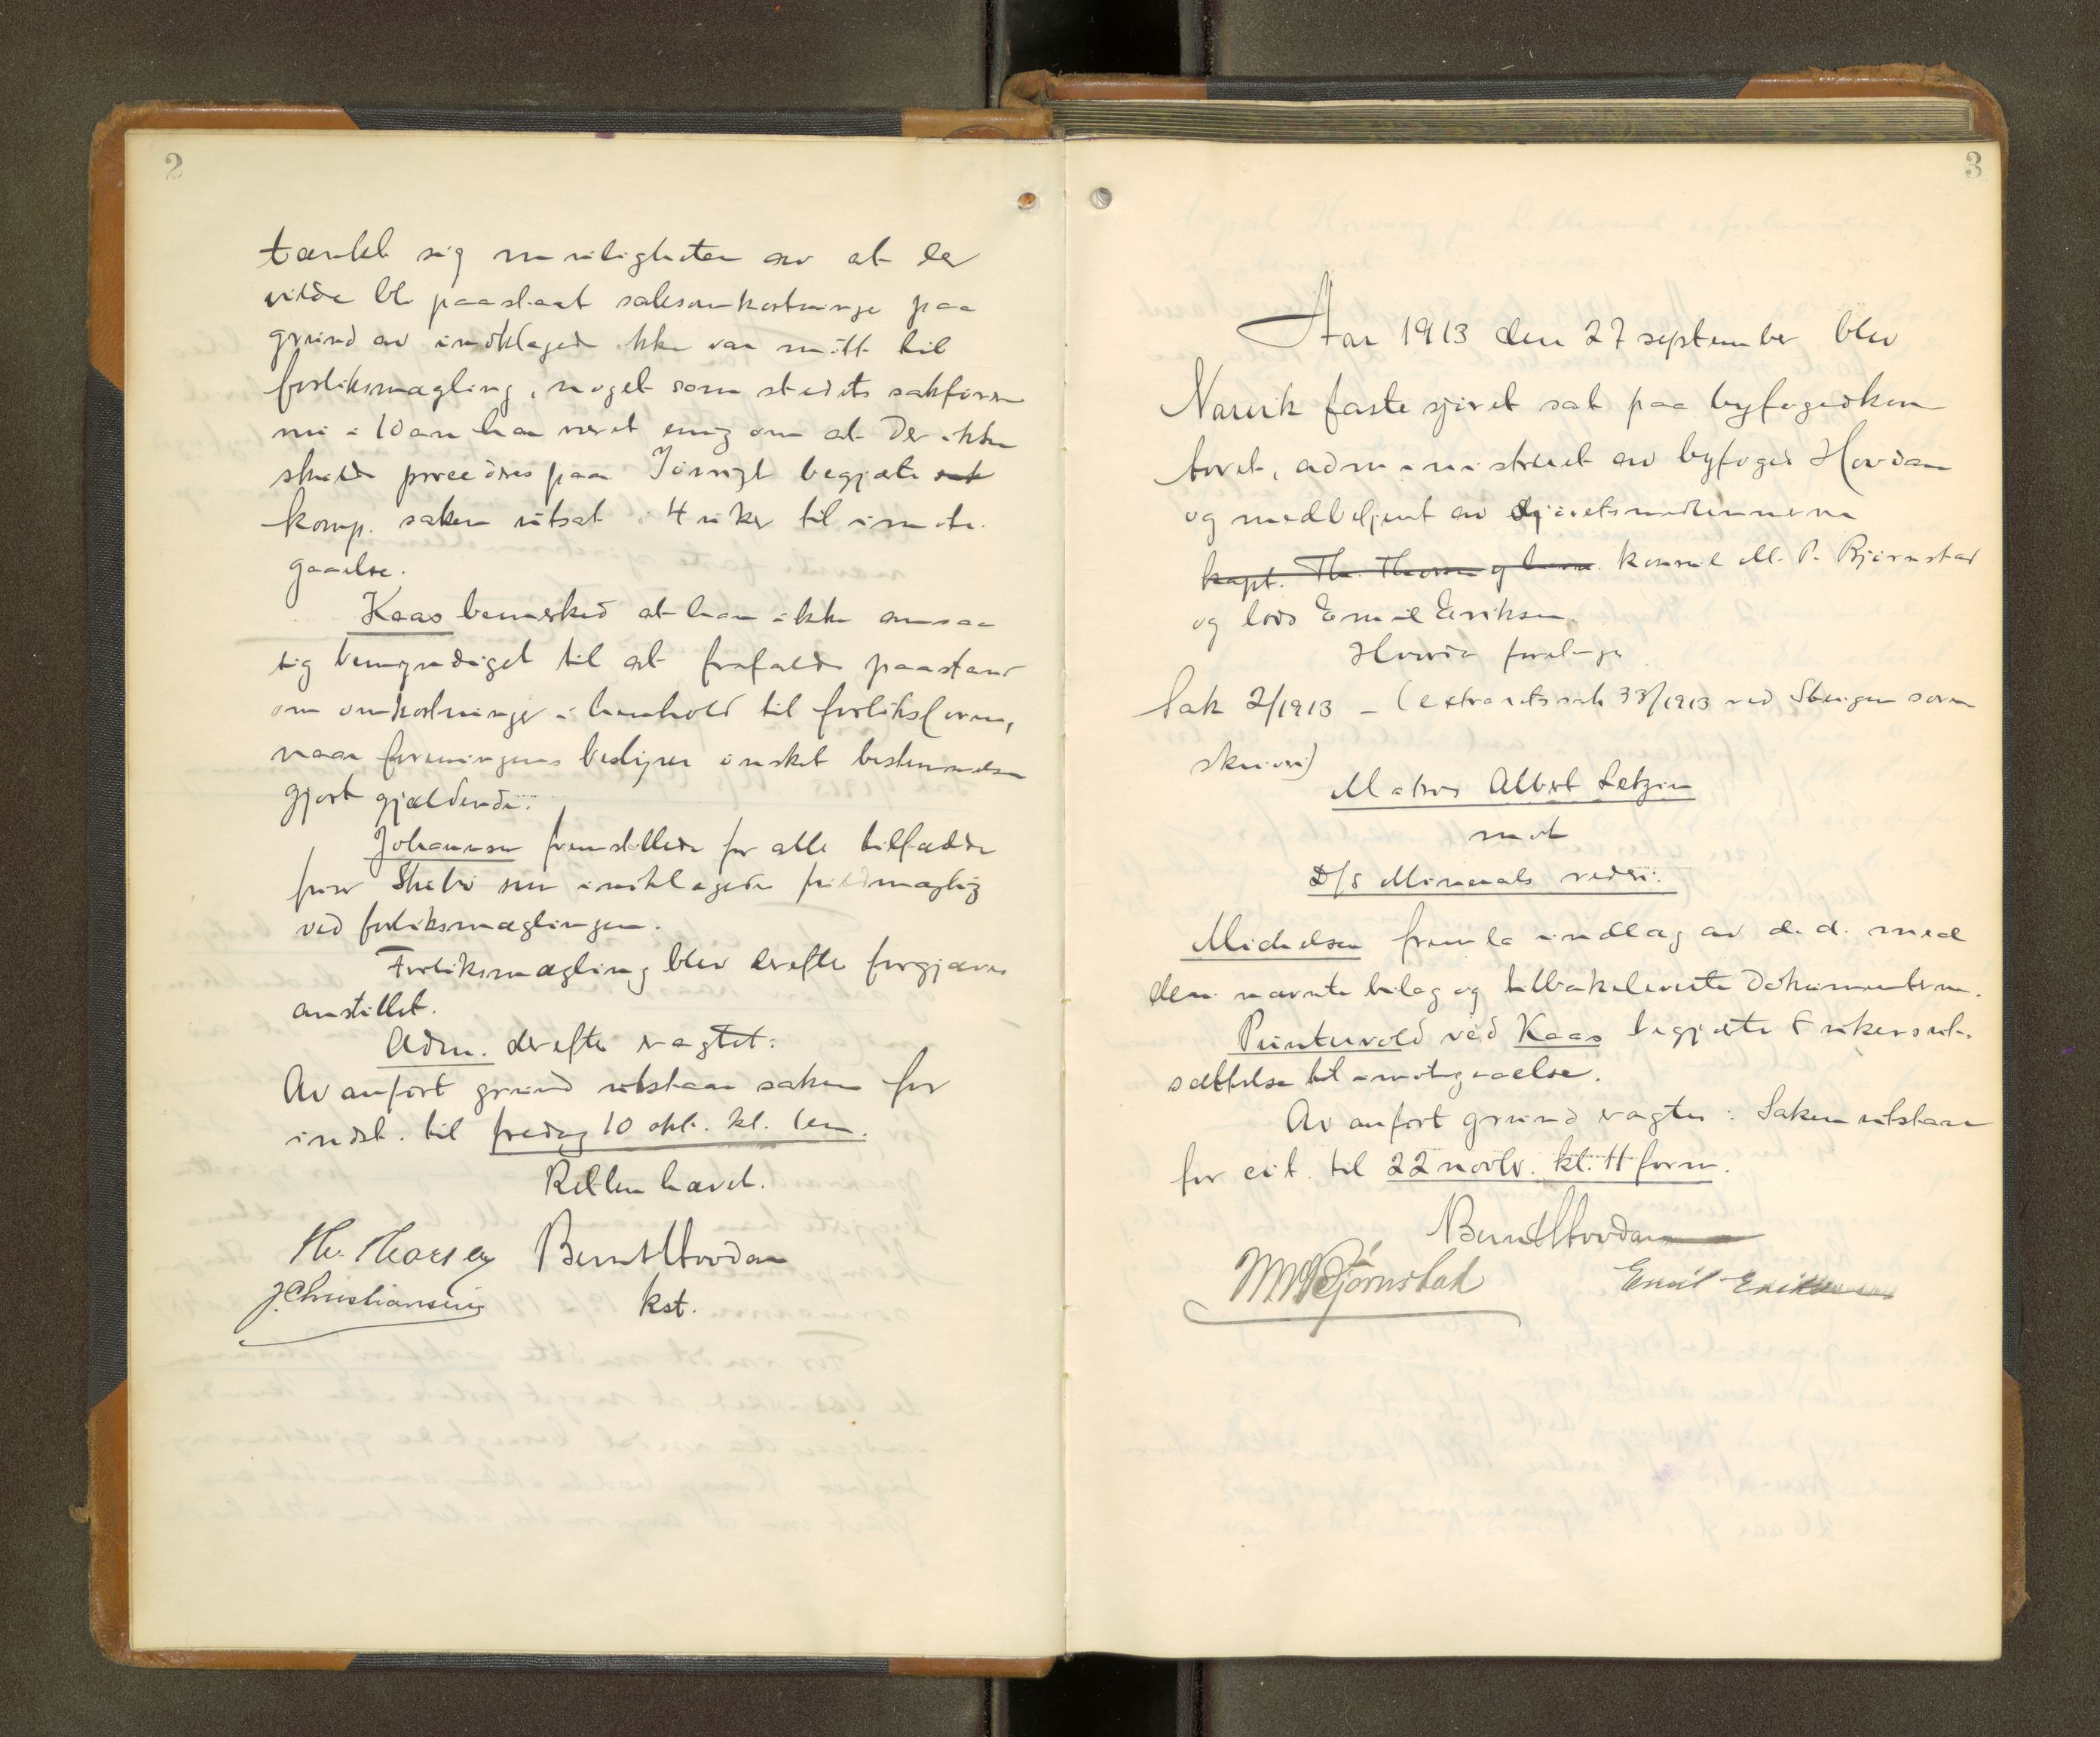 2
tænkt sig muligheten av at der
vilde bli paastaat saksomkostninger paa
grund av indklagede ikke var møtt til
forliksmægling, noget som stedets sakfører
nu i 10 aar har været enig om at der ikke
skulde procederes paa. Iøvrigt begjærte
komp. saken utsat i 4 uker til imøte-
gaaelse.
Kaas bemerked at han ikke ansaa
sig bemyndiget til at frafalde paastand
om omkostninger i henhold til forliksloven,
naar foreningens bestyrer ønsket bestemmelsen
gjort gjældende.
Johansen fremstillede for alle tilfælde
som indklagedes
ved forliksmæglingen.
Forliksmægling blev derefter forgjæves
anstillet.
Adm. derefter eragtet:
Av anført grund utstaar saken for
indst. til fredag 10 okt. kl. 1 em.
Retten hævet.
Th. Thorsen Bernt Hovdan
J. Christiansen kst.
3
Aar 1913 den 27 september blev
Narvik faste sjøret sat paa byfogedkon-
toret, administreret av byfoged Hovdan
og medbetjent av sjøretsmedlemmerne
kapt. Th. Thorsen og konsul M. P. Bjørnstad
og lods Emil Eriksen.
Hvorda foretages
Sak 2/1913 – (extraretssak 33/1913 ved Steigen soren-
skriveri)
Matros Albert Letzin
mot
D/S Minerals rederi.
Michelsen fremla indlæg av d. d. med
deri nævnte bilag og tilbakeleverte dokumenterne.
Printervold ved Kaas begjærte 8 ukers ut-
sættelse til imøtegaaelse.
Av anført grund eragtes: Saken utstaar
for cit. til 22 novbr. kl. 11 form.
Bernt Hovdan
M. P. Bjørnstad Emil Eriksen